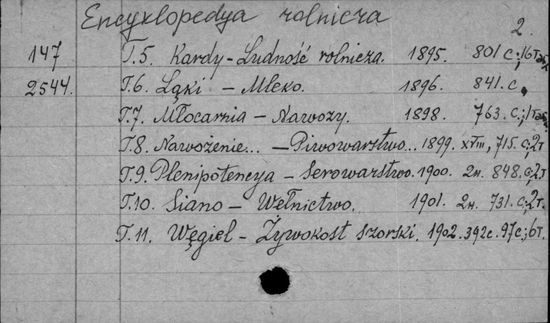 Encyklopedya rolnicza
2.
147 T.5. Kardy-Ludność rolnicza. 1895. 801 c.; 16 t
2544. T.6. Łąki – Mleko. 1896. 841. c.
T.7. Młocarnia – Nawozy. 1898. 763. c.; 1
T.8. Nawożenie... – Piwowarstwo.. 1899. XVIII, 715. c; 2t
T.9. Plenipotencya – Serowarstwo. 1900. 2н. 848. c; 2t
T.10. Siano – Wełnictwo. 1901. 2н. 731. c; 2t.
T.11. Węgiel – Żywokost szorski. 1902. 392c. 97c; 6t.